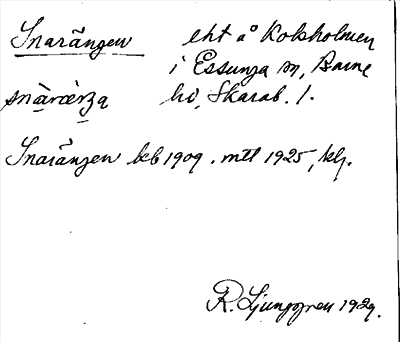 Snarängen eht å Kolsholmen
i Essunga sn, Barne
snàræ̀rŋa hd, Skarab. l.
Snarängen kcb 1909. mtl 1925, klj.
R. Ljunggren 1929.